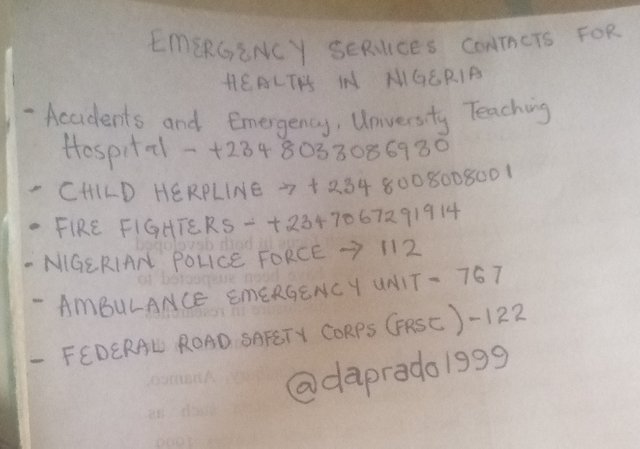 EMERGENCY SERVICES CONTACTS FOR
HEALTH IN NIGERIA
- Accidents and Emergency, University Teaching
Hospital - +234 8033086980
- CHILD HERPLINE → +234 8008008001
- FIRE FIGHTERS - +2347067291914
- NIGERIAN POLICE FORCE → 112
- AMBULANCE EMERGENCY UNIT - 767
- FEDERAL ROAD SAFETY CORPS (FRSC) - 122
@daprado1999